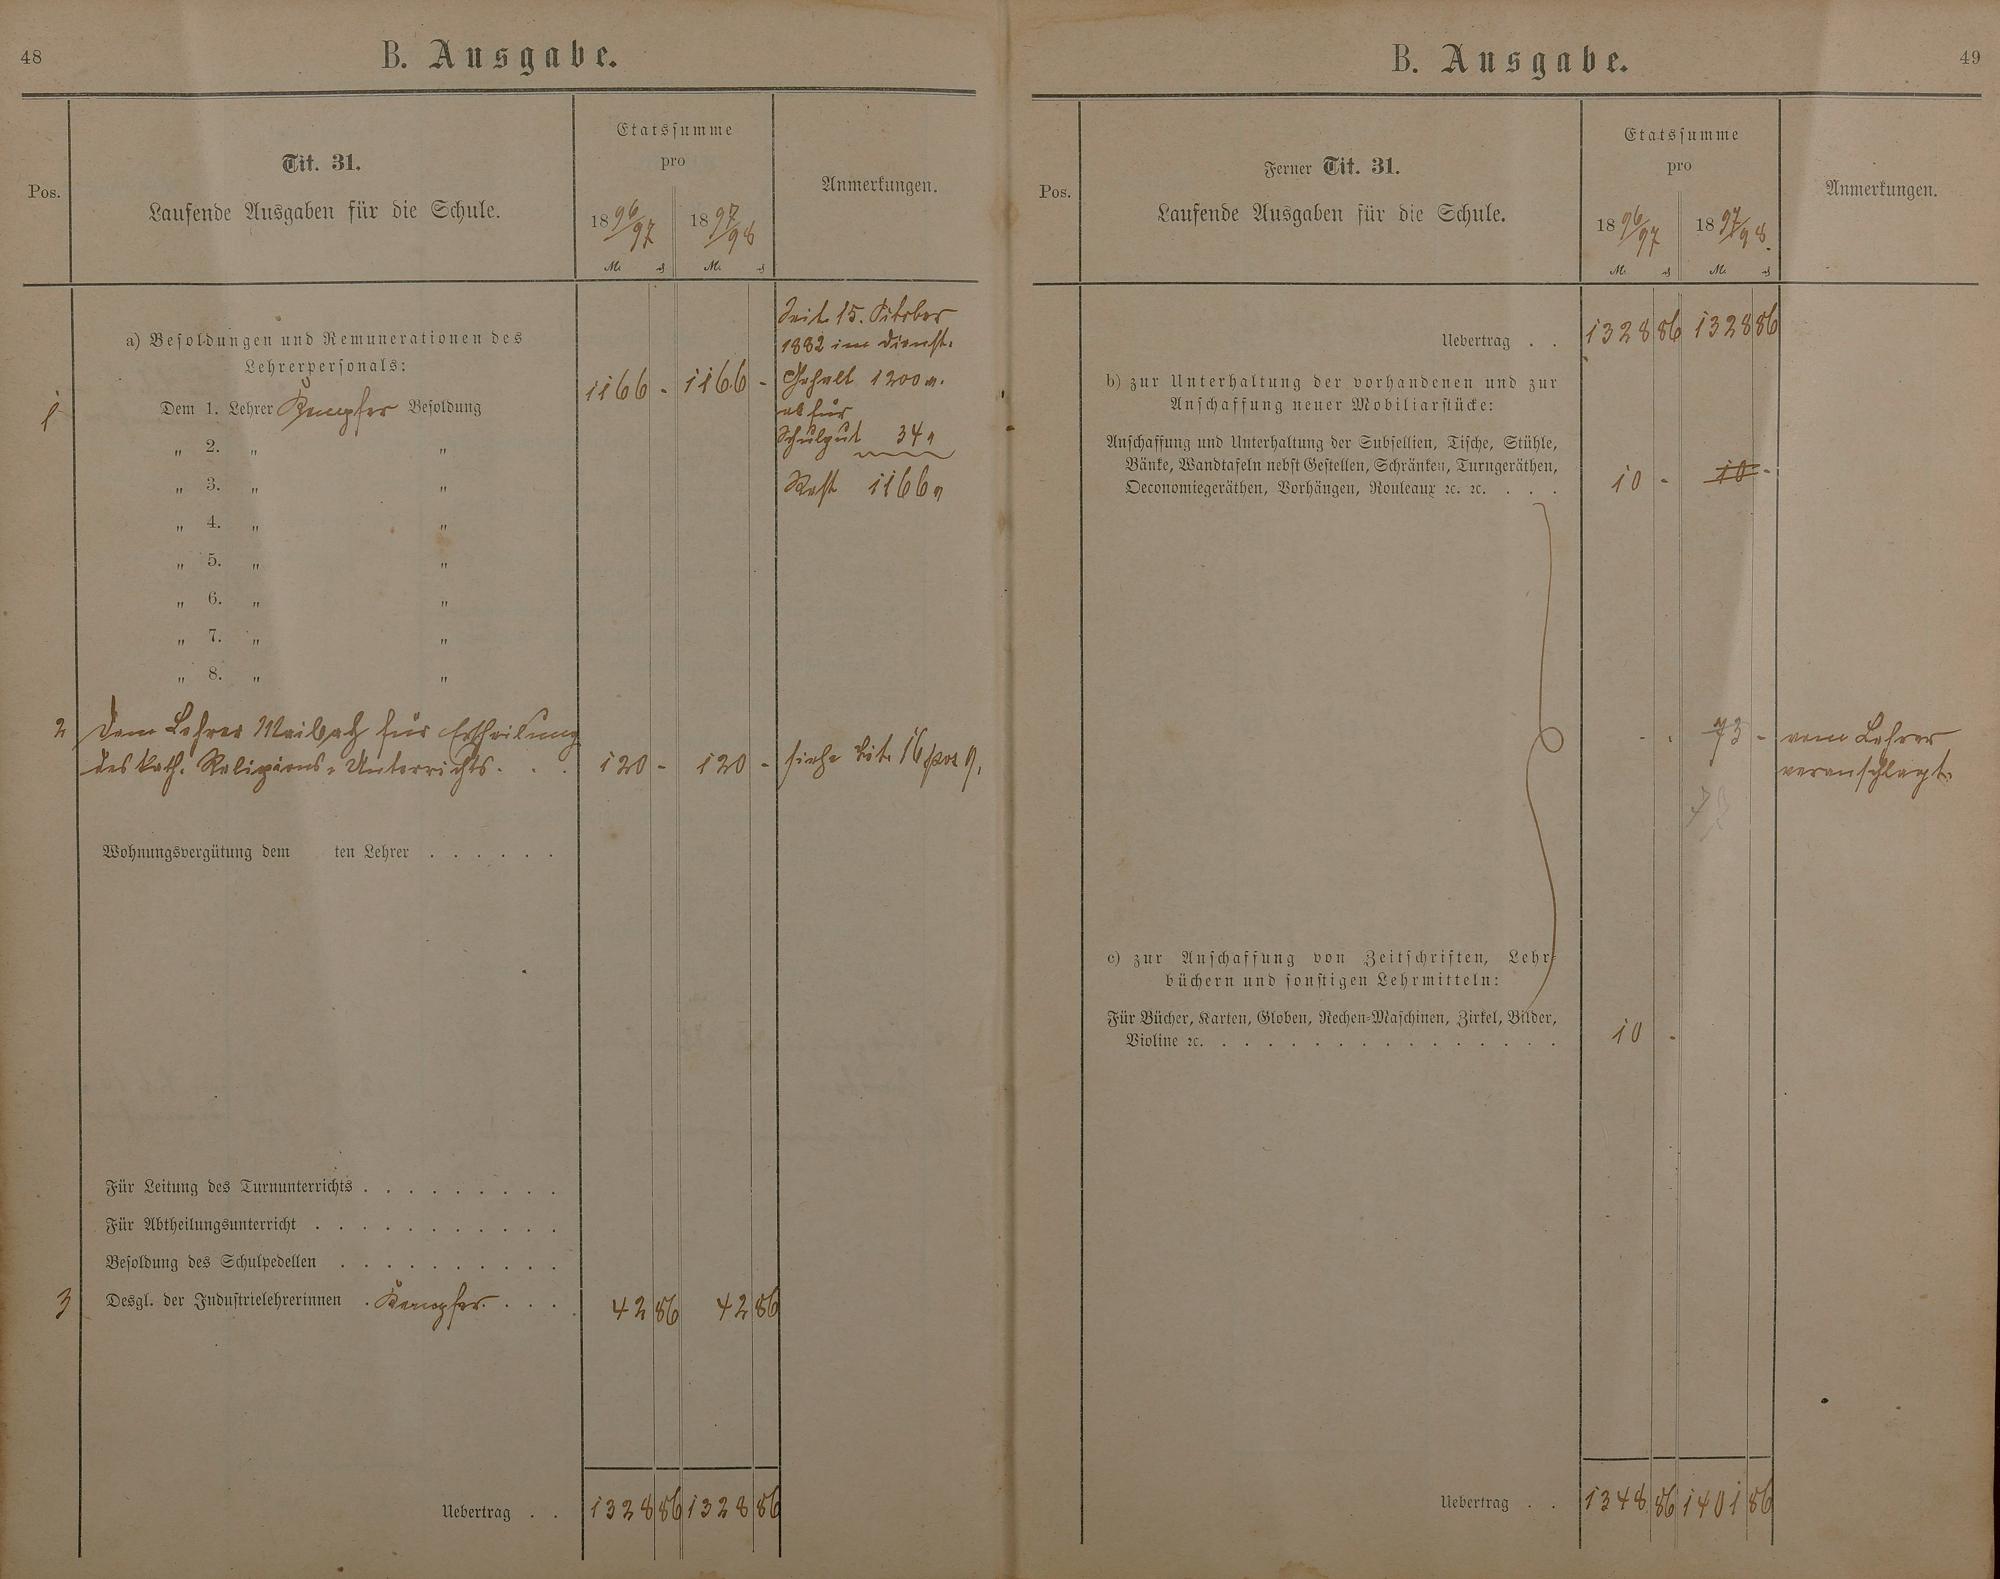 48
B. Ausgabe.
Pos.
Tit. 31.
Laufende Ausgaben für die Schule.
Etatssumme
pro
1896/97 1897/98
M. ₰ M. ₰
Anmerkungen.
a) Besoldungen und Remunerationen des
Lehrerpersonals:
1 Dem 1. Lehrer Kempfer Besoldung 1166 - 1166 -
Seit 15. Oktober
1882 im Dienst.
Gehalt 1200 M.
ab für
Schulgut 34 "
Rest 1166 "
" 2. " "
" 3. " "
" 4. " "
" 5. " "
" 6. " "
" 7. " "
" 8. " "
2 Dem Lehrer Maibach für Ertheilung
des kath. Religions-Unterrichts. . . 120 - 120 - siehe Tit. 16 pos 9.
Wohnungsvergütung dem ten Lehrer . . . . . .
Für Leitung des Turnunterrichts . . . . . . . . .
Für Abtheilungsunterricht . . . . . . . . . . .
Besoldung des Schulpedellen . . . . . . . . . .
3 Desgl. der Industrielehrerinnen . Kempfer. . . . 42 86 42 86
Uebertrag . . 1328 86 1328 86
B. Ausgabe.
49
Pos.
Ferner Tit. 31.
Laufende Ausgaben für die Schule.
Etatssumme
pro
1896/97 1897/98.
M. ₰ M. ₰
Anmerkungen.
Uebertrag . . 1328 86 1328 86
b) zur Unterhaltung der vorhandenen und zur
Anschaffung neuer Mobiliarstücke:
Anschaffung und Unterhaltung der Subsellien, Tische, Stühle,
Bänke, Wandtafeln nebst Gestellen, Schränken, Turngeräthen,
Oeconomiegeräthen, Vorhängen, Rouleaux ꝛc. ꝛc. . . . 10 - 10 -
- . 73 - vom Lehrer
veranschlagt.
73
c) zur Anschaffung von Zeitschriften, Lehr-
büchern und sonstigen Lehrmitteln:
Für Bücher, Karten, Globen, Rechen-Maschinen, Zirkel, Bilder,
Violine ꝛc. . . . . . . . . . . . . . . . 10 -
Uebertrag . . 1348 86 1401 86